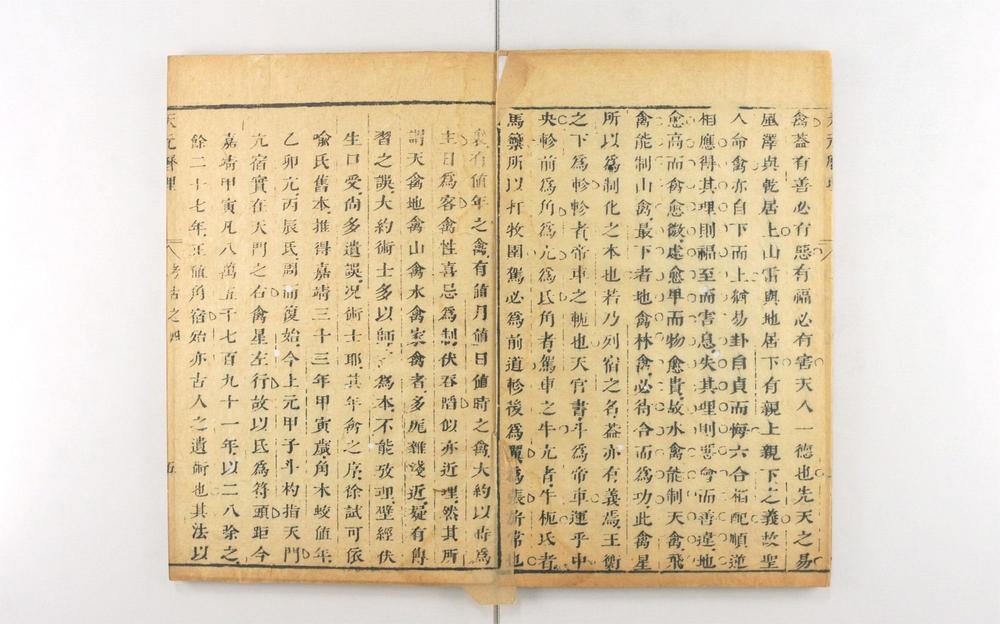 禽葢有善必有惡有福必有害天人一德也先天之易
風澤與乾居上山雷與地居下有親上親下之義故聖
人命禽亦自下而上猶易卦自貞而悔六合相配順逆
相應得其理則福至而害息失其理則害會而善違地
愈高而禽愈微處愈卑而物愈貴故水禽能制天禽飛
禽能制山禽最下者地禽林禽必待合而爲功此禽星
所以爲制化之本也若乃列宿之名葢亦有義焉王衡
之下爲軫軫者帝車之軌也天官書斗爲帝車運乎中
央軫前爲角爲亢爲氐角者駕車之牛亢者牛軛氐者
馬藥所以打牧圉駕必爲前道軫後爲翼爲張旂常也
襄有値年之禽有値月値日値時之禽大約以時爲
主日爲客禽性喜忌爲制伏吞啗似亦近理然其所
謂天禽地禽山禽水禽家禽者多厖雜淺近疑有傳
習之誤大約術士多以師爲本不能攷理壁經伏
生口受尚多遺誤况術士耶其年禽之序徐試可依
喩氏舊本推得嘉靖三十三年甲寅歲角木蛟値年
乙卯亢丙辰氐周而復始今上元甲子斗杓指天門
亢宿實在天門之右禽星左行故以氐爲符頭距今
嘉靖甲寅凡八萬五千七百九十一年以二八除之
餘二十七年正値角宿殆亦古人之遺術也其法以
天元曆理
考古之四
五